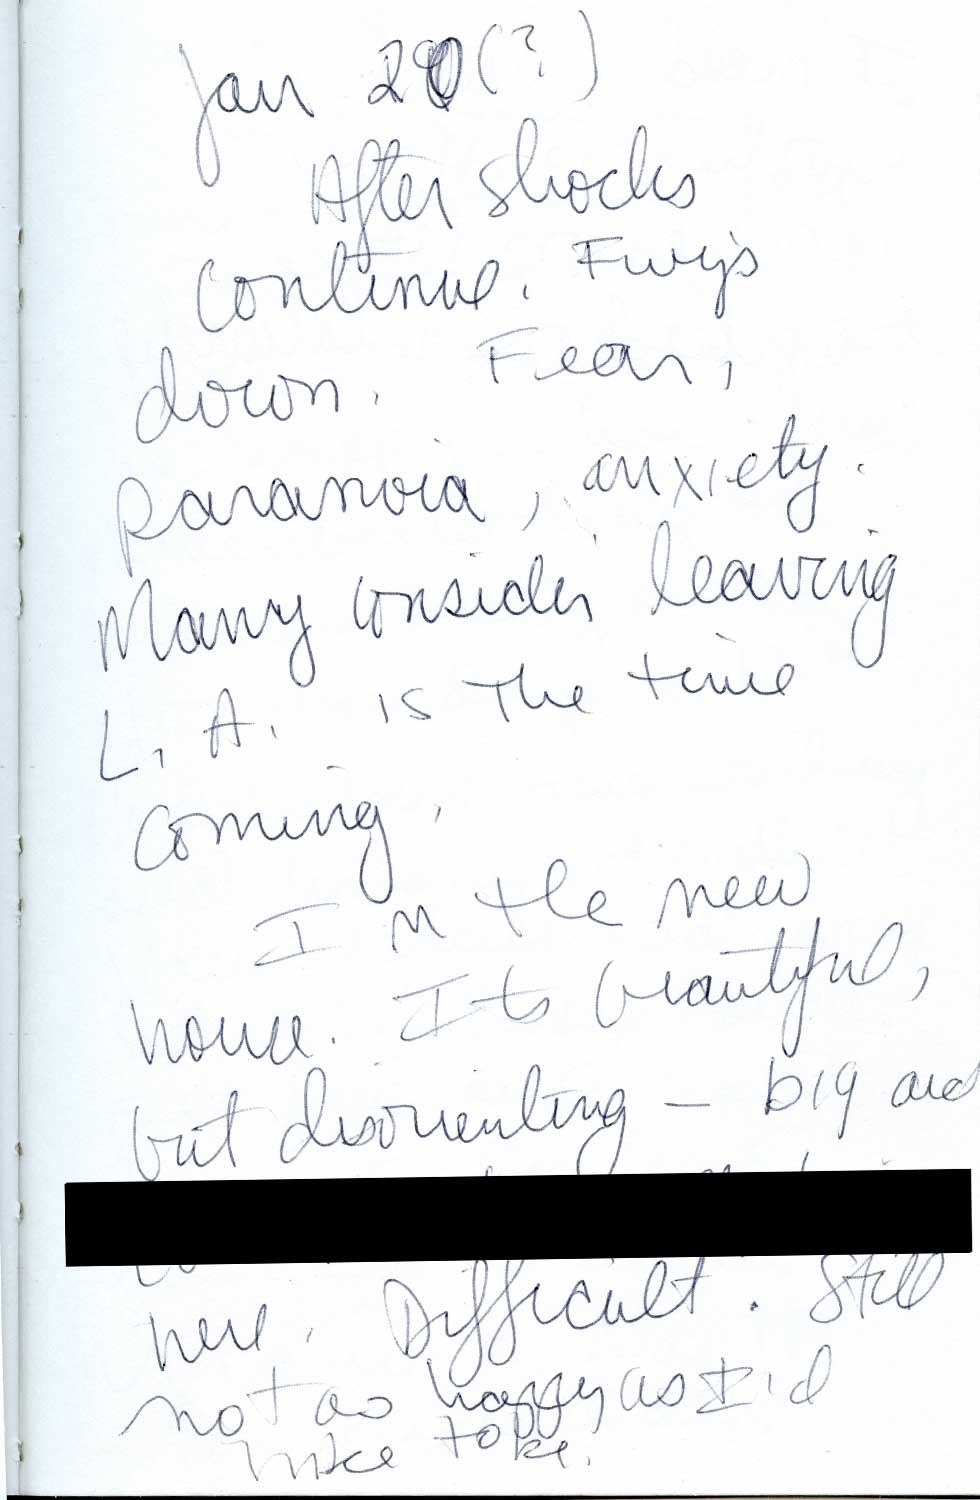 Jan 20 (?)
After shocks
continue. Fwy's
down. Fear,
paranoia, anxiety.
Many consider leaving
L.A. is the time
coming.
I'm the new
house. Its beautiful,
but disorienting — big and
here. Difficult. Still
not as happy as I'd
like to be.